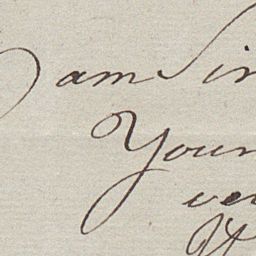 am Sir
Your
ve